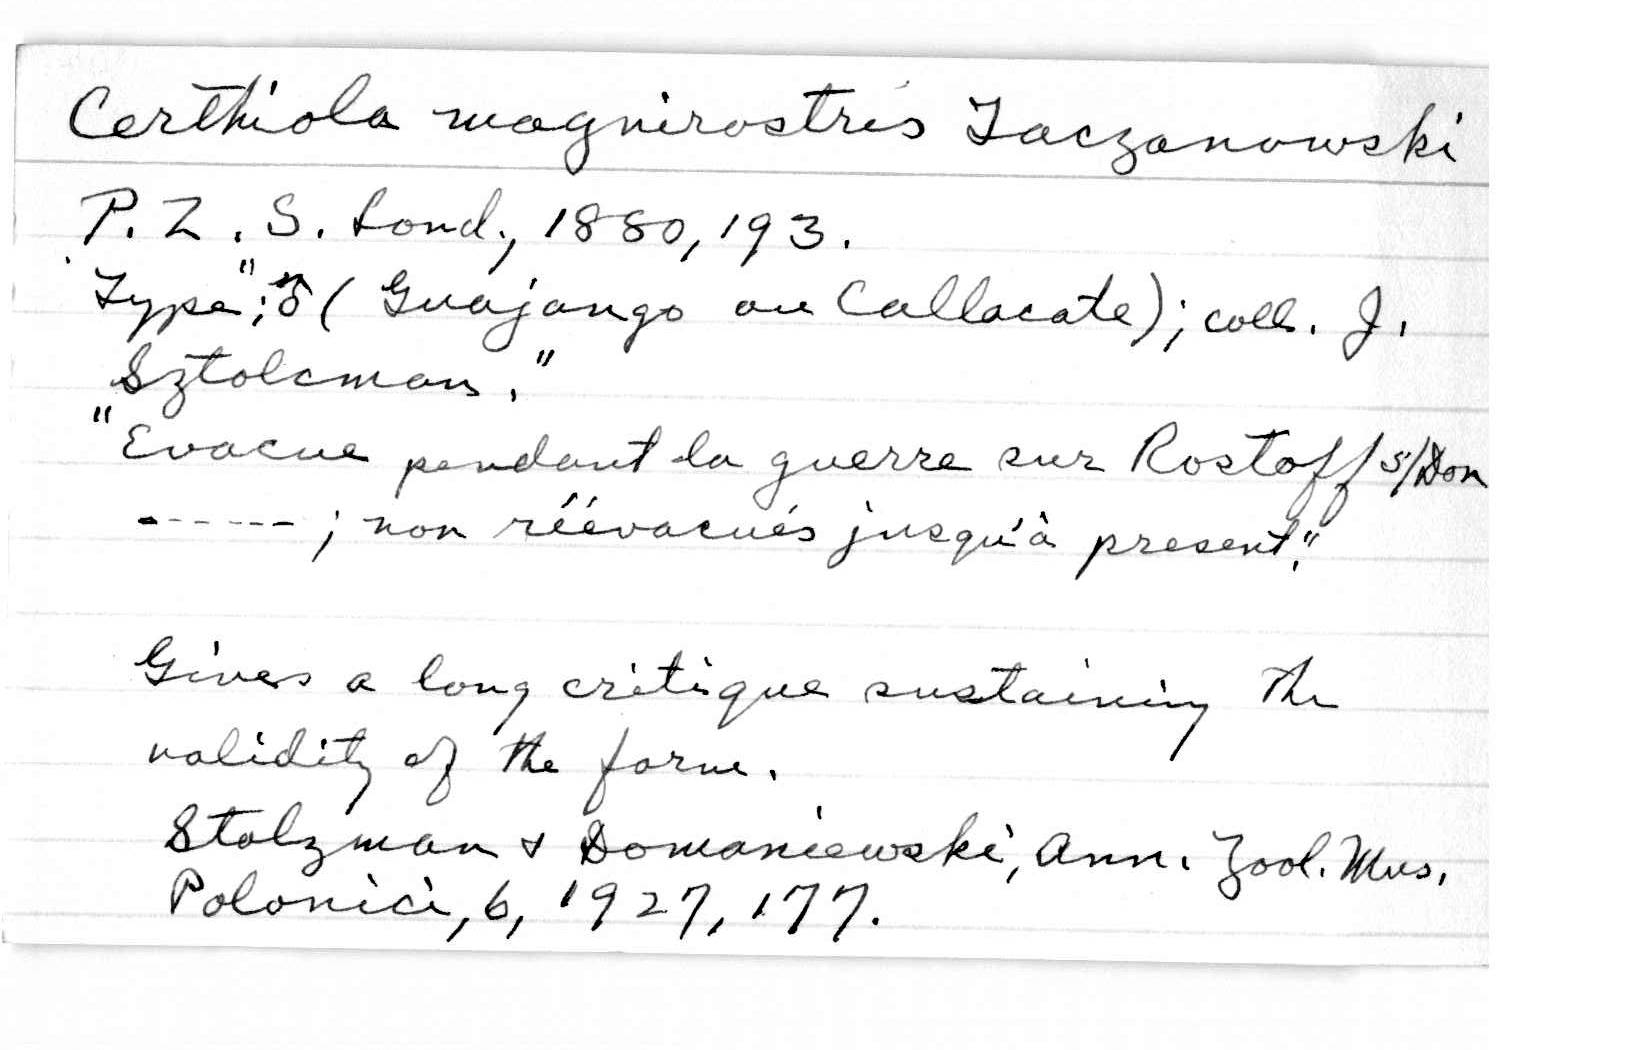 Certhiola magnirostris Taczanowski
P. Z. S. Lond., 1880, 193.
Type"; ♂ ( Guajango ou Callacate); coll. J.
Sztolcman."
"Evacue pendant la guerre sur Rostoff s/Don
------; non réévacués jusqu'à present."
Gives a long critique sustaining the
validity of the form.
Stolzman & Domaniewski, Ann. Zool. Mus.
Polonici, 6, 1927, 177.